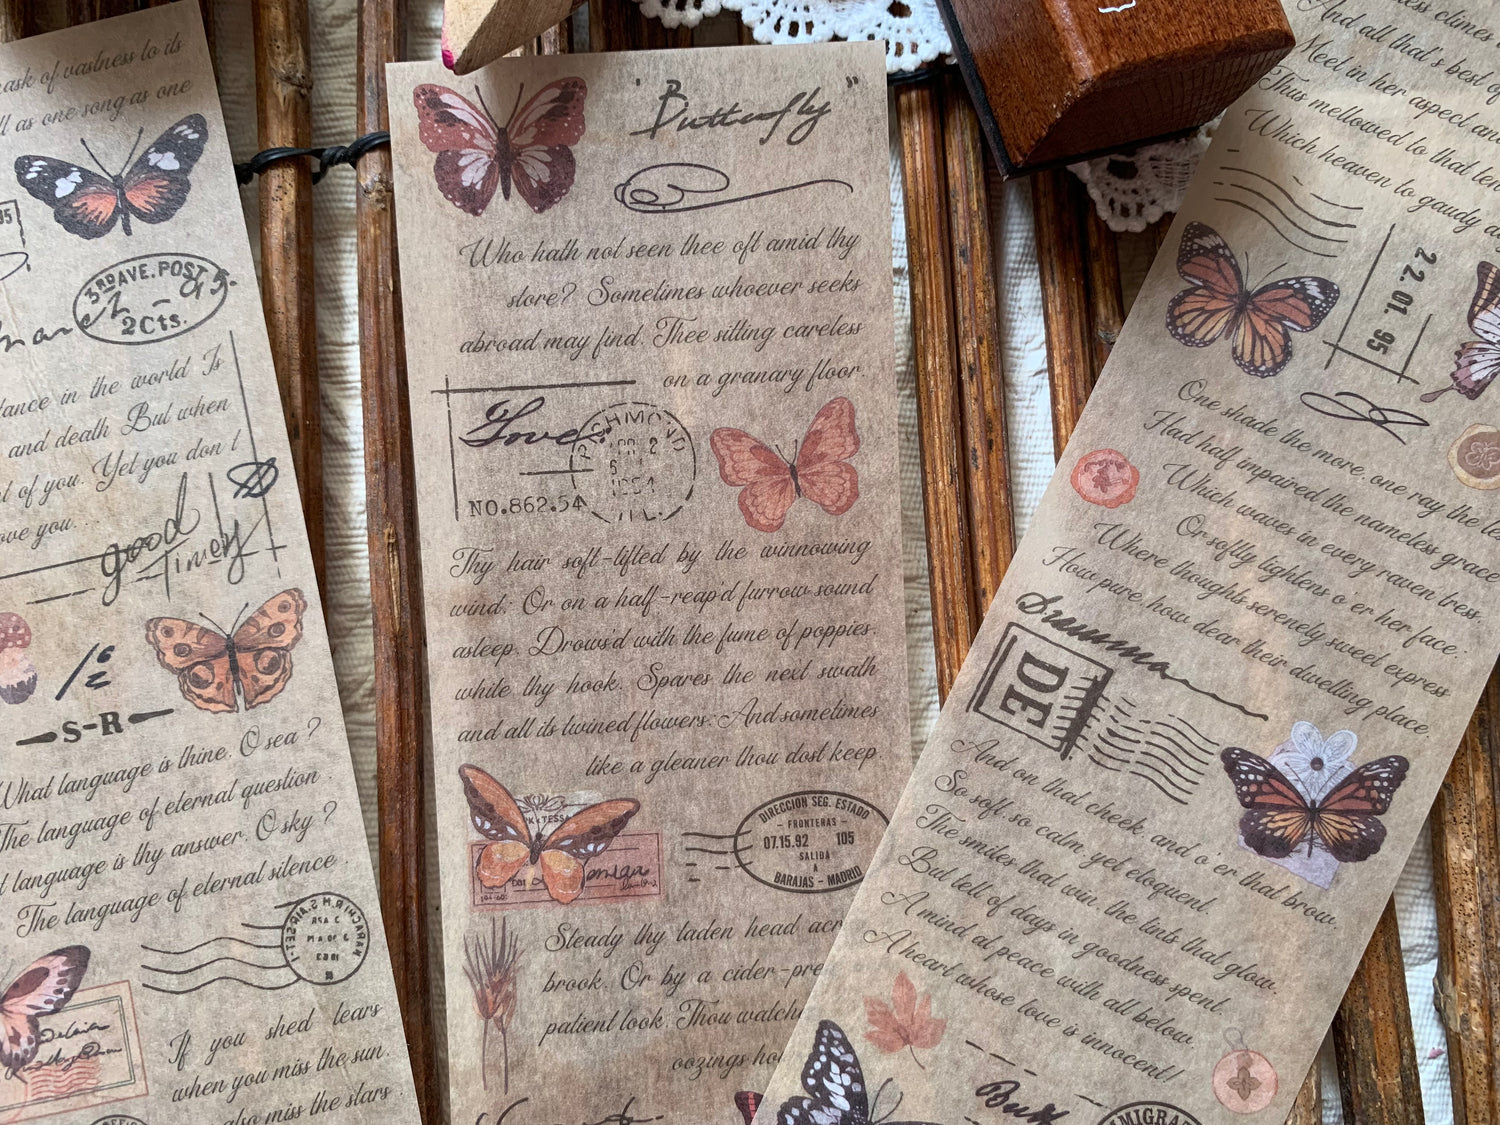 mask of vastness to its
as one song as one
95
3RD AVE. POST
March - 95.
2Cts.
in the world Is
and death But when
of you. Yet you don t
ove you. . .
good
Timely
S-R
What language is thine. O sea ?
The language of eternal question .
language is thy answer. O sky ?
The language of eternal silence .
If you shed tears
when you miss the sun.
also miss the stars .
"Butterfly"
Who hath not seen thee oft amid thy
store? Sometimes whoever seeks
abroad may find. Thee sitting careless
on a granary floor.
Love
RICHMOND
NO.862.54
Thy hair soft-lifted by the winnowing
wind; Or on a half-reap'd furrow sound
asleep. Drows'd with the fume of poppies.
while thy hook. Spares the next swath
and all its twined flowers: And sometimes
like a gleaner thou dost keep
DIRECCION SEG. ESTADO
- FRONTERAS -
07.15.92 105
SALIDA
A
BARAJAS - MADRID
Steady thy laden head
brook. Or by a
patient look. Thou
oozings
climes
And all that's best of
Meet in her aspect and
Thus mellowed to that
Which heaven to gaudy
22.01.95
One shade the more, one ray the
Had half impaired the nameless grace
Which waves in every raven tress.
Or softly lightens o'er her face;
Where thoughts serenely sweet express
How pure, how dear their dwelling place.
DE
And on that cheek, and o'er that brow.
So soft, so calm, yet eloquent.
The smiles that win, the tints that glow.
But tell of days in goodness spent.
A mind at peace with all below.
A heart whose love is innocent!